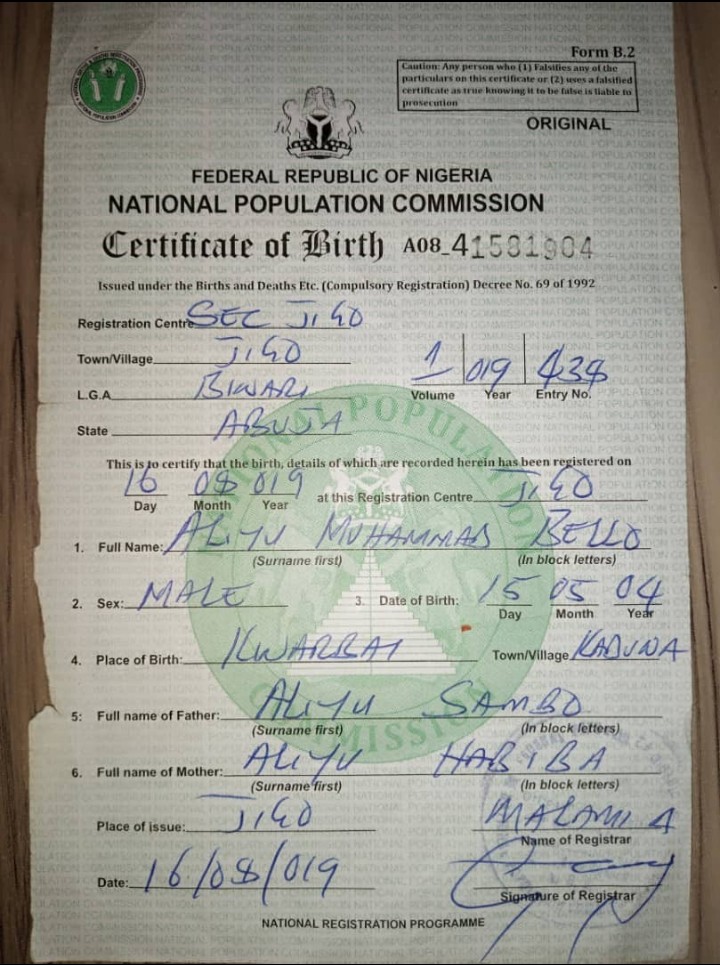 Form B.2
Caution: Any person who (1) Falsifies any of the
particulars on this certificate or (2) uses a falsified
certificate as true knowing it to be false is liable to
prosecution
ORIGINAL
FEDERAL REPUBLIC OF NIGERIA
NATIONAL POPULATION COMMISSION
Certificate of Birth A08_41581904
Issued under the Births and Deaths Etc. (Compulsory Registration) Decree No. 69 of 1992
Registration Centre SEC JIGO
Town/Village JIGO
1 019 438
L.G.A BIWARI Volume Year Entry No.
State ABUJA
This is to certify that the birth, details of which are recorded herein has been registered on
16 08 019 at this Registration Centre JIGO
Day Month Year
1. Full Name: ALIYU MUHAMMAD BELLO
(Surname first) (In block letters)
2. Sex: MALE 3. Date of Birth: 15 05 04
Day Month Year
4. Place of Birth: KWARBAI Town/Village KADUNA
5: Full name of Father: ALIYU SAMBO
(Surname first) (In block letters)
6. Full name of Mother: ALIYU HABIBA
(Surname first) (In block letters)
Place of issue: JIGO MALAMI A
Name of Registrar
Date: 16/08/019
Signature of Registrar
NATIONAL REGISTRATION PROGRAMME
NATIONAL POPULATION COMMISSION